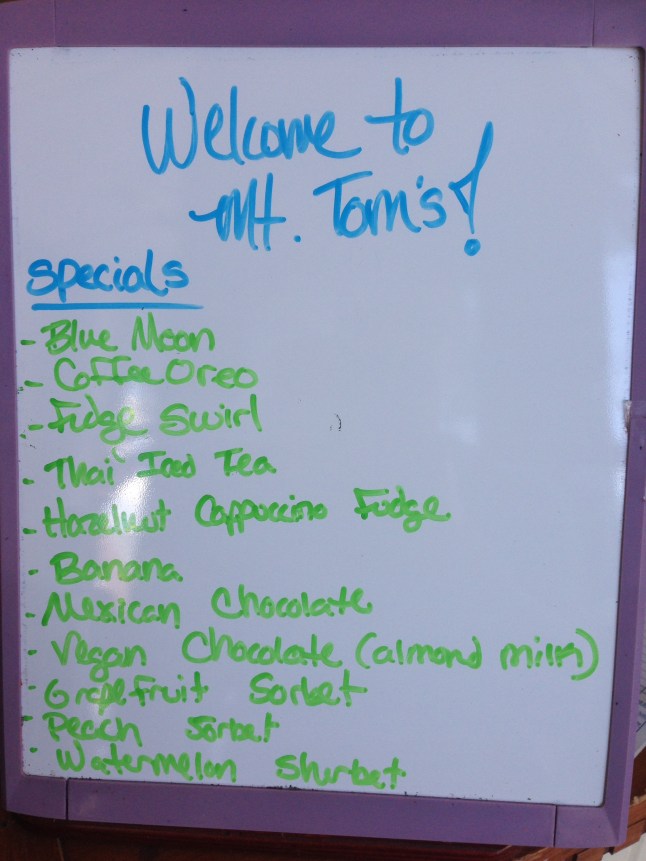 Welcome to
Mt. Tom's!
Specials
- Blue Moon
- Coffee Oreo
- Fudge Swirl
- Thai Iced Tea
- Hazelnut Cappuccino Fudge
- Banana
- Mexican Chocolate
- Vegan Chocolate (almond milk)
- Grapefruit Sorbet
- Peach Sorbet
- Watermelon Shurbet